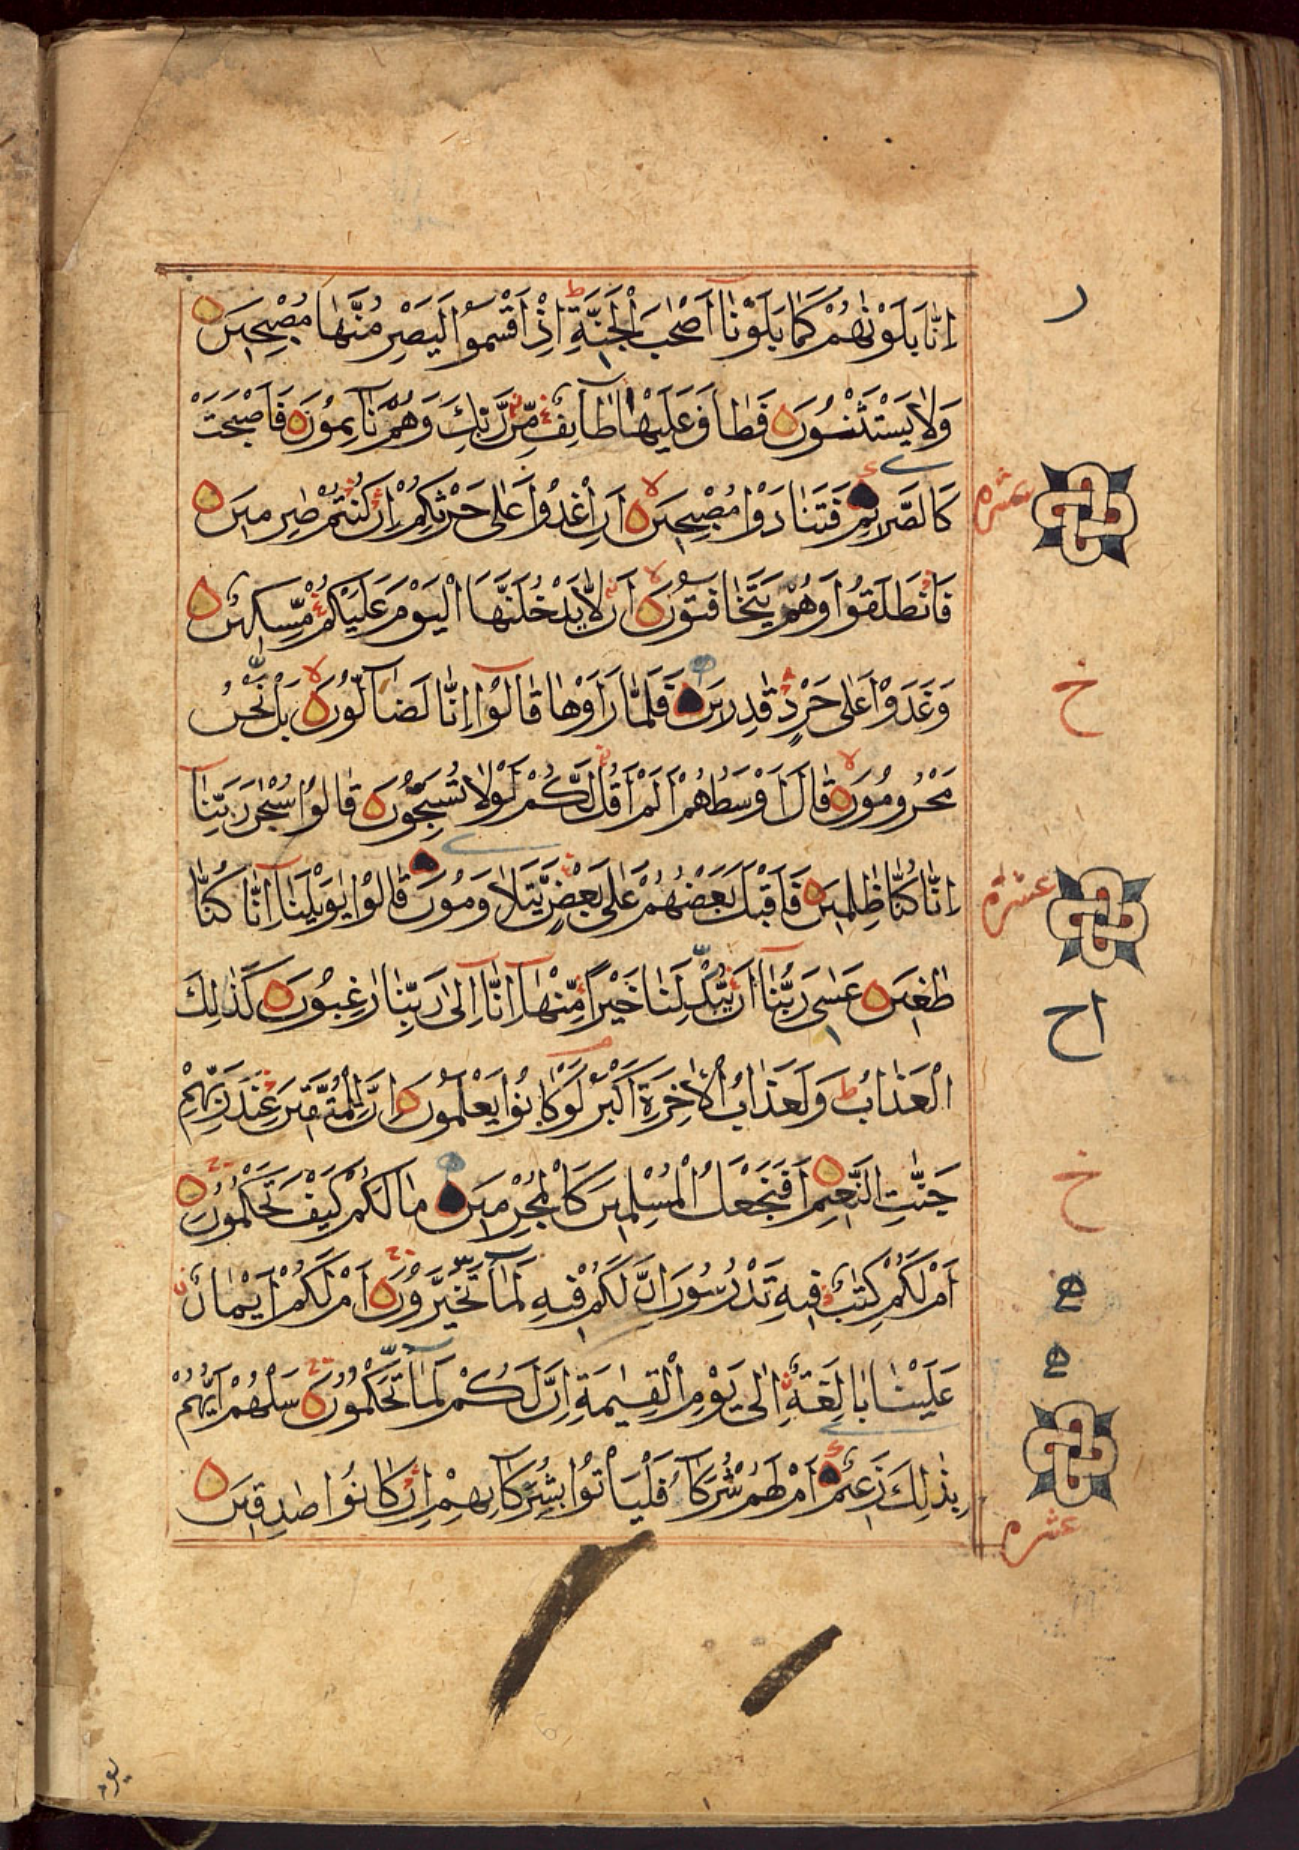 اِنَّا بَلَوْنٰهُمْ كَمَا بَلَوْنَاۤ اَصْحٰبَ الْجَنَّةِ ط اِذْ اَقْسَمُوْا لَيَصْرِمُنَّهَا مُصْبِحِيْنَ
وَلَا يَسْتَثْنُوْنَ فَطَافَ عَلَيْهَا طَاۤىِٕفٌ مِّنْ رَّبِّكَ وَهُمْ نَاۤىِٕمُوْنَ فَاَصْبَحَتْ
كَالصَّرِيْمِ فَتَنَادَوْا مُصْبِحِيْنَ لا اَنِ اغْدُوْا عَلٰى حَرْثِكُمْ اِنْ كُنْتُمْ صٰرِمِيْنَ
عشره
فَانْطَلَقُوْا وَهُمْ يَتَخَافَتُوْنَ لا اَنْ لَّا يَدْخُلَنَّهَا الْيَوْمَ عَلَيْكُمْ مِّسْكِيْنٌ
وَغَدَوْا عَلٰى حَرْدٍ قٰدِرِيْنَ فَلَمَّا رَاَوْهَا قَالُوْۤا اِنَّا لَضَاۤلُّوْنَ لا بَلْ نَحْنُ
خ
مَحْرُوْمُوْنَ لا قَالَ اَوْسَطُهُمْ اَلَمْ اَقُلْ لَّكُمْ لَوْلَا تُسَبِّحُوْنَ قَالُوْا سُبْحٰنَ رَبِّنَاۤ
اِنَّا كُنَّا ظٰلِمِيْنَ فَاَقْبَلَ بَعْضُهُمْ عَلٰى بَعْضٍ يَّتَلَاوَمُوْنَ قَالُوْا يٰوَيْلَنَاۤ اِنَّا كُنَّا
عشره
طٰغِيْنَ عَسٰى رَبُّنَاۤ اَنْ يُّبْدِلَنَا خَيْرًا مِّنْهَاۤ اِنَّاۤ اِلٰى رَبِّنَا رٰغِبُوْنَ كَذٰلِكَ
اح
الْعَذَابُ ط وَلَعَذَابُ الْاٰخِرَةِ اَكْبَرُ لَوْ كَانُوْا يَعْلَمُوْنَ اِنَّ لِلْمُتَّقِيْنَ عِنْدَ رَبِّهِمْ
جَنّٰتِ النَّعِيْمِ اَفَنَجْعَلُ الْمُسْلِمِيْنَ كَالْمُجْرِمِيْنَ مَا لَكُمْ كَيْفَ تَحْكُمُوْنَ
خ
اَمْ لَكُمْ كِتٰبٌ فِيْهِ تَدْرُسُوْنَ اِنَّ لَكُمْ فِيْهِ لَمَا تَخَيَّرُوْنَ اَمْ لَكُمْ اَيْمَانٌ
عَلَيْنَا بَالِغَةٌ اِلٰى يَوْمِ الْقِيٰمَةِ اِنَّ لَكُمْ لَمَا تَحْكُمُوْنَ سَلْهُمْ اَيُّهُمْ
بِذٰلِكَ زَعِيْمٌ اَمْ لَهُمْ شُرَكَاۤءُ فَلْيَاْتُوْا بِشُرَكَاۤىِٕهِمْ اِنْ كَانُوْا صٰدِقِيْنَ
عشره